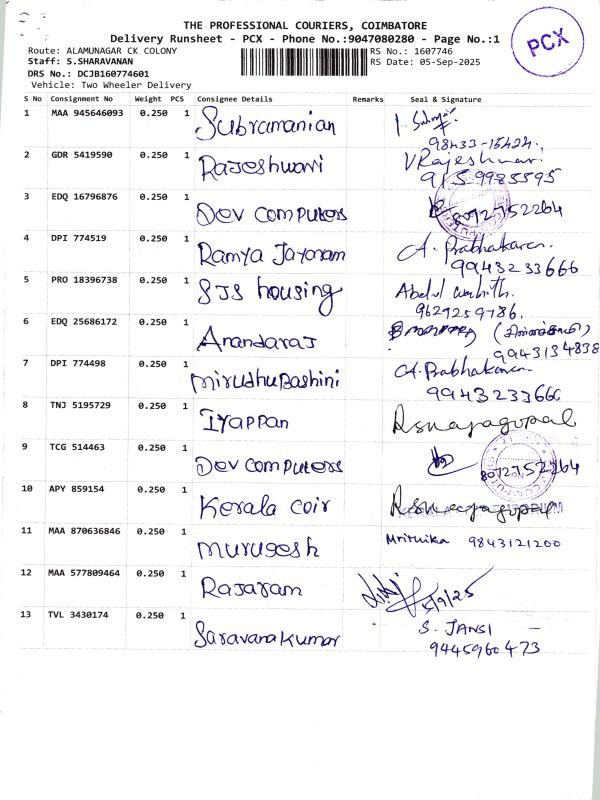 THE PROFESSIONAL COURIERS, COIMBATORE
Delivery Runsheet - PCX - Phone No.:9047080280 - Page No.:1
PCX
Route: ALAMUNAGAR CK COLONY
RS No.: 1607746
Staff: S.SHARAVANAN
RS Date: 05-Sep-2025
DRS No.: DCJB160774601
Vehicle: Two Wheeler Delivery
S No Consignment No Weight PCS Consignee Details Remarks Seal & Signature
1 MAA 945646093 0.250 1 Subramanian
98433-15424.
2 GDR 5419590 0.250 1 Rajeshwari V Rajeshwari
915 9985595
3 EDQ 16796876 0.250 1 Dev Computers 8072752264
4 DPI 774519 0.250 1 Ramya Jayaram A. Prabhakaran.
9943233666
5 PRO 18396738 0.250 1 SJS housing Abdul
9629259786.
6 EDQ 25686172 0.250 1 Anandaraj
9943134838
7 DPI 774498 0.250 1 Mirudhubashini A. Prabhakaran
9943233666
8 TNJ 5195729 0.250 1 Iyappan Rsurajagopal
9 TCG 514463 0.250 1 Dev Computers 8072752264
10 APY 859154 0.250 1 Kerala coir
11 MAA 870636846 0.250 1 Murugesh Mrithika 9843121200
12 MAA 577809464 0.250 1 Rajaram 5/9/25
13 TVL 3430174 0.250 1 Saravanakumar S. JANSI -
9445960473